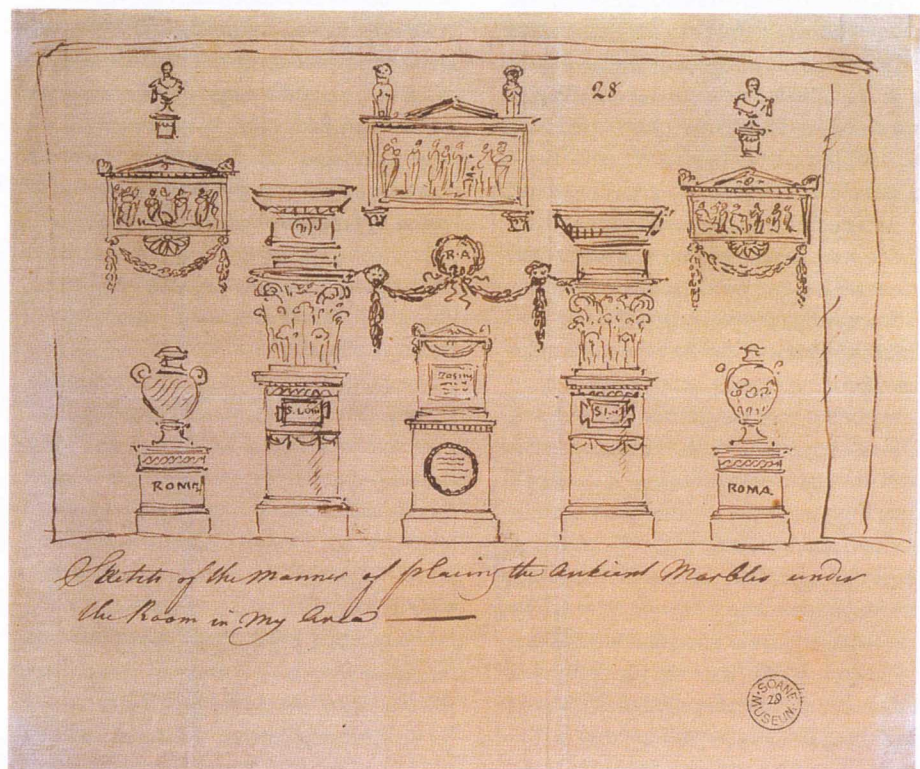 28
R.A
ROMA
ROMA
Sketch of the manner of placing the Antient Marbles under
the Room in my Area
SOANE
28
MUSEUM